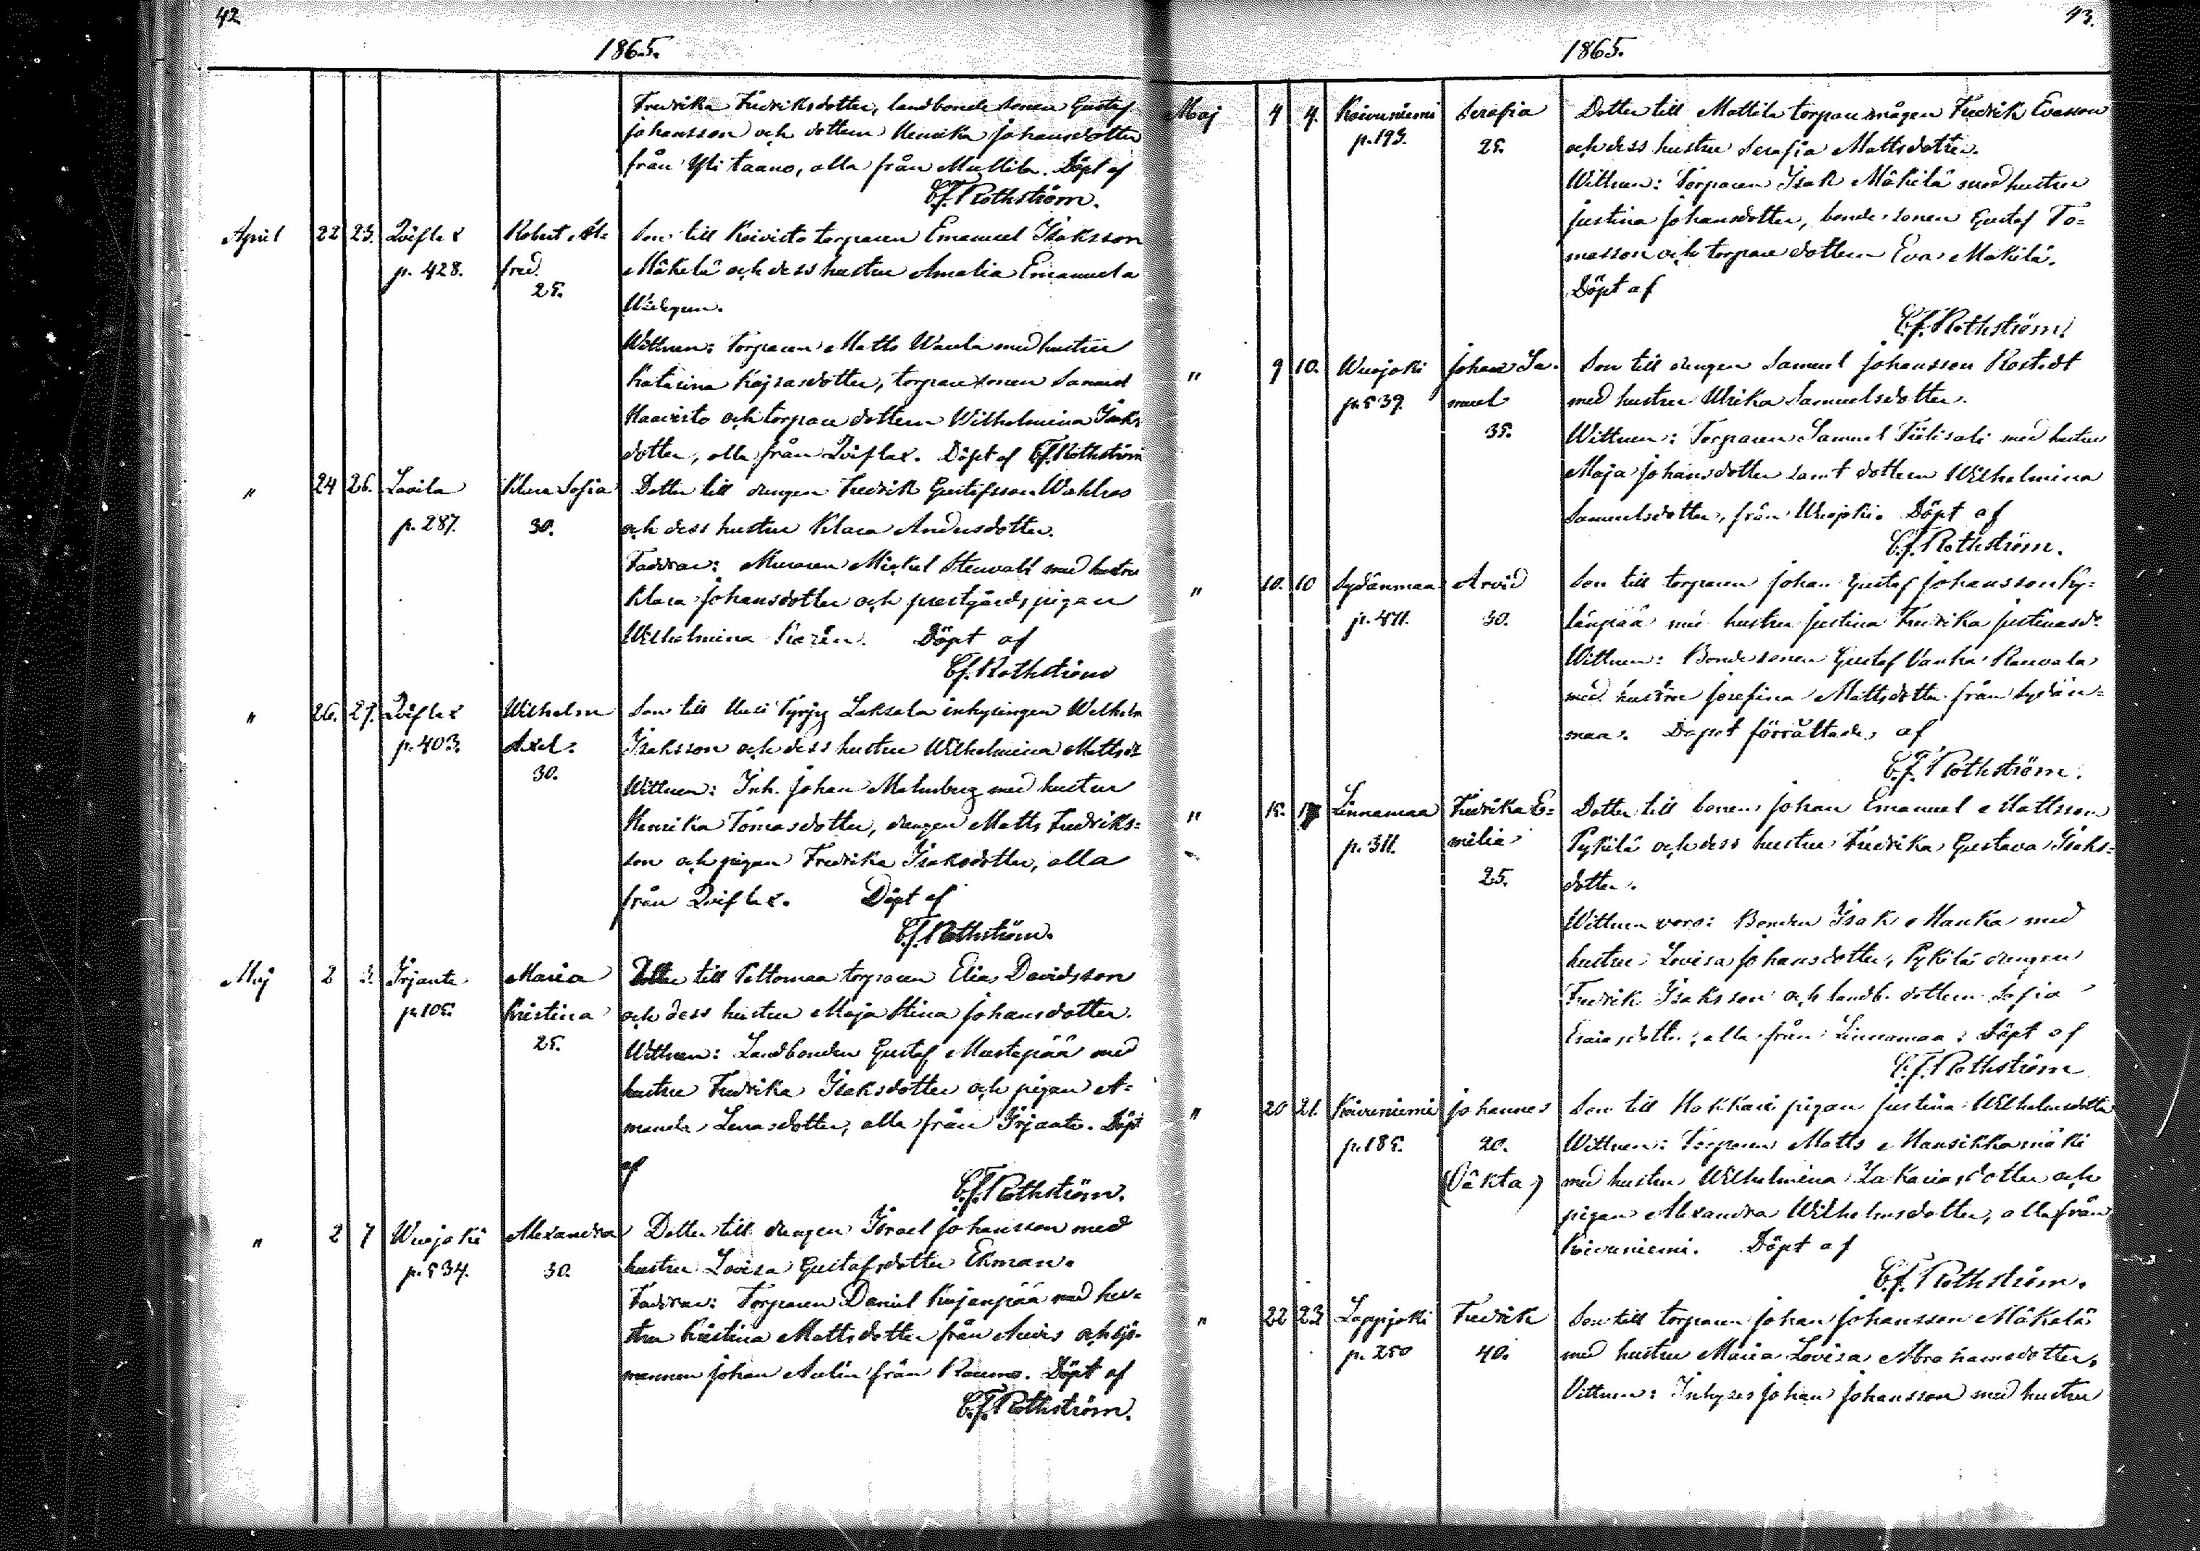 42
1865.
Fredrika Fredriksdotter, landbonde sonen Gustaf
Johansson och dottern Henrika Johansdotter
från Yli taano, alla från Mullila. Döpt af
C.f. Rothström.
April 22 23. Qviflax Robert Al= Son till Koivisto torparen Emanuel Isaksson
p. 428. fred. Mäkelä och dess hustru Amalia Emanuela
25.
Widgren.
Wittnen: Torparen Matts Waula med hustru
Katarina Kajsasdotter, torparesonen Samuel
Haavisto och torpare dottern Wilhelmina Isaks
dotter, alla från Qviflax. Döpt af C.f. Rothström
" 24 26. Lavila Klara Sofia Dotter till drengen Fredrik Gustafsson Wahlros
p. 287. 30. och dess hustru Klara Andersdotter.
Faddrar: Muraren Mickel Stenvall med hustru
Klara Johansdotter och prestgårds pigan
Wilhelmina Sirén. Döpt af
C.f. Rothström
" 26. 27. Qviflax Wilhelm Son till Uusi Pyrjy Laksala inhysingen Wilhelm
p. 403. Axel. Isaksson och dess hustru Wilhelmina Mattsd:r
30.
Wittnen: Inh. Johan Malmberg med hustru
Henrika Tomasdotter, drengen Matts Fredriks=
son och pigan Fredrika Isaksdotter, alla
från Qviflax. Döpt af
C.f. Rothström.
Maj 2 3. Irjanta Maria Dotter till Peltomaa torparen Elias Davidsson
p. 105. Kristina och dess hustru Maja Stina Johansdotter.
25.
Wittnen: Landbonden Gustaf Mustapää med
hustru Fredrika Isaksdotter och pigan A=
manda Lenasdotter, alla från Irjanta. Döpt
af
C.f. Rothström.
" 2 7 Wuojoki Alexandra Dotter till drengen Israel Johansson med
p. 534. 30. hustru Lovisa Gustafsdotter Ekman.
Faddrar: Torparen Daniel Kujanpää med hu=
stru Kristina Mattsdotter från Auvis och sjö=
mannen Johan Aulin från Raumo. Döpt af
C.f. Rothström.
43.
1865.
Maj 4 4. Koivuniemi Serafia Dotter till Mattila torpare mågen Fredrik Evasson
p. 193. 25. och dess hustru Serafia Mattsdotter.
Wittnen: Torparen Isak Mäkilä med hustru
Justina Johansdotter, bonde sonen Gustaf To=
masson och torpare dottern Eva Mäkilä.
Döpt af
C.f. Rothström.
" 9 10. Wuojoki Johan Sa= Son till drengen Samuel Johansson Rostedt
p. 539. muel med hustru Ulrika Samuelsdotter.
35.
Wittnen: Torparen Samuel Tiilisali med hustru
Maja Johansdotter samt dottern Wilhelmina
Samuelsdotter, från Wuojoki. Döpt af
C.f. Rothström.
" 10. 10 Sydänmaa Arvid Son till torparen Johan Gustaf Johansson Ky=
p. 411. 30. länpää med hustru Justina Fredrika Justinasd:r
Wittnen: Bonde sonen Gustaf Vanha Rauvala
med hustru Josefina Mattsdotter från Sydän=
maa. Dopet förrättades af
C.f. Rothström.
" 15. 17 Linnamaa Fredrika E= Dotter till bonen Johan Emanuel Mattsson
p. 311. milia Pykilä och dess hustru Fredrika Gustava Isaks=
25. dotter.
Wittnen voro: Bonden Isak Manka med
hustru Lovisa Johansdotter, Pykilä drengen
Fredrik Isaksson och landb. dottern Sofia
Esaiasdotter, alla från Linnamaa. Döpt af
C.f. Rothström
" 20 21. Koivuniemi Johannes Son till Hakkari pigan Justina Wilhelmsdotter
p. 185. 20. Wittnen: Torparen Matts Mansikkamäki
(Oäkta) med hustru Wilhelmina Zakariasdotter och
pigan Alexandra Wilhelmsdotter, alla från
Koivuniemi. Döpt af
C.f. Rothström.
" 22 23 Lappijoki Fredrik Son till torparen Johan Johansson Mäkelä
p. 250 40. med hustru Maria Lovisa Abrahamsdotter.
Vittnen: Inhyses Johan Johansson med hustru